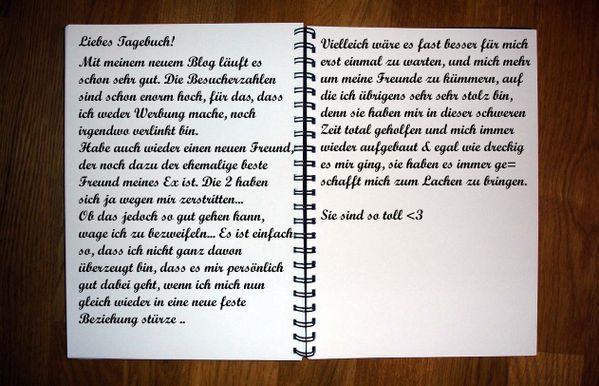 Liebes Tagebuch!
Mit meinem neuem Blog läuft es
schon sehr gut. Die Besucherzahlen
sind schon enorm hoch, für das, dass
ich weder Werbung mache, noch
irgendwo verlinkt bin.
Habe auch wieder einen neuen Freund,
der noch dazu der ehemalige beste
Freund meines Ex ist. Die 2 haben
sich ja wegen mir zerstritten...
Ob das jedoch so gut gehen kann,
wage ich zu bezweifeln... Es ist einfach
so, dass ich nicht ganz davon
überzeugt bin, dass es mir persönlich
gut dabei geht, wenn ich mich nun
gleich wieder in eine neue feste
Beziehung stürze ..
Vielleich wäre es fast besser für mich
erst einmal zu warten, und mich mehr
um meine Freunde zu kümmern, auf
die ich übrigens sehr sehr stolz bin,
denn sie haben mir in dieser schweren
Zeit total geholfen und mich immer
wieder aufgebaut & egal wie dreckig
es mir ging, sie haben es immer ge=
schafft mich zum Lachen zu bringen.
Sie sind so toll <3